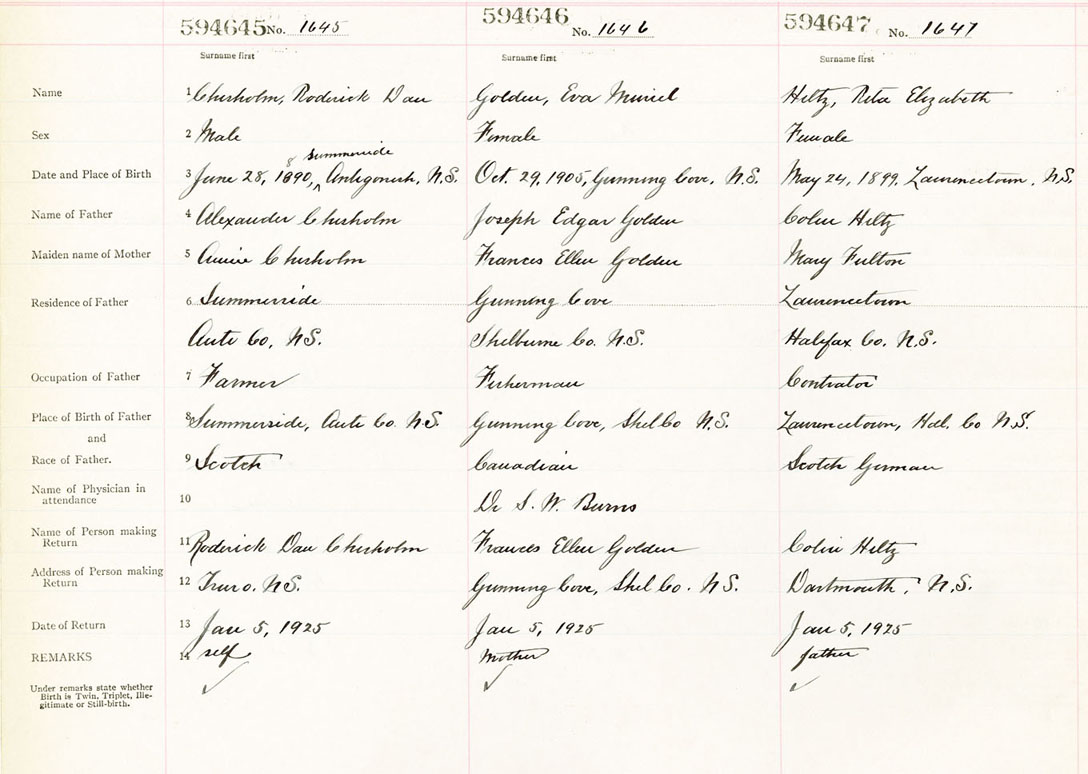 594645 No. 1645 594646 No. 1646 594647 No. 1647
Surname first Surname first Surname first
Name 1 Chisholm, Roderick Dan Golden, Eva Muriel Hiltz, Rita Elizabeth
Sex 2 Male Female Female
8 Summerside
Date and Place of Birth 3 June 28, 1890, ^ Antigonish, N.S. Oct. 29, 1905, Gunning Cove, N.S. May 24, 1899, Lawrencetown, N.S.
Name of Father 4 Alexander Chisholm Joseph Edgar Golden Colin Hiltz
Maiden name of Mother 5 Annie Chisholm Frances Ellen Golden Mary Fulton
Residence of Father 6 Summerside Gunning Cove Lawrencetown
Ante Co, N.S. Shelburne Co. N.S. Halifax Co. N.S.
Occupation of Father 7 Farmer Fisherman Contrator
Place of Birth of Father 8 Summerside, Ante Co. N.S. Gunning Cove, Shel Co N.S. Lawrencetown, Hal. Co N.S.
and
Race of Father. 9 Scotch Canadian Scotch German
Name of Physician in
attendance 10 Dr S. W. Burns
Name of Person making
Return 11 Roderick Dan Chisholm Frances Ellen Golden Colin Hiltz
Address of Person making
Return 12 Truro. N.S. Gunning Cove, Shel Co. N.S. Dartmouth, N.S.
Date of Return 13 Jan 5, 1925 Jan 5, 1925 Jan 5, 1925
REMARKS 14 self mother father
Under remarks state whether
Birth is Twin, Triplet, Ille-
gitimate or Still-birth.